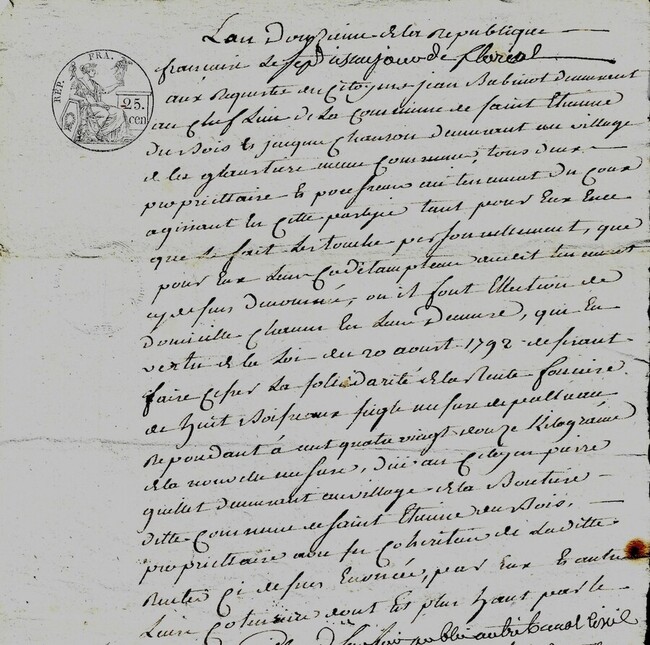 Lan Douzieme de la Republique
francaise Le sept disieme jour de floreal
REP. FRA.
25. cen
aux Requestes du Citoyens jean Babinot demeurant
au Chef Lieu de La Commune de Saint Etienne
Du Bois Et jacque Chauson demeurant au village
de les glaustiere meme Commune, tous deux
proprietaire Et possesseur au tenement du Coux
agissant En Cette partye tant pour Eux En ce
que Le fait Les touche personnellement, que
pour Eux Leur Codetampteur audit tenement
cy desus denommé, ou il font Ellection de
domicille Chacun En Leur Demeure, qui En
vertu de la Loi du 20 aoust 1792 desirant
faire cesser La solidarité de la Rente fonciere
de huit Boisseaux seigle mesure de palluau
Repondant á cent quatre vingt douze Kilograme
de la nouvelle mesure, düe au Citoyen pierre
guillet demeurant au village de la Boutiere
ditte Commune de Saint Etienne du Bois,
proprietaire avec ses Coheritier de La ditte
Rente Ci desus Enoncée, pour Eux Et autre
Leurs Et les plus haut par le